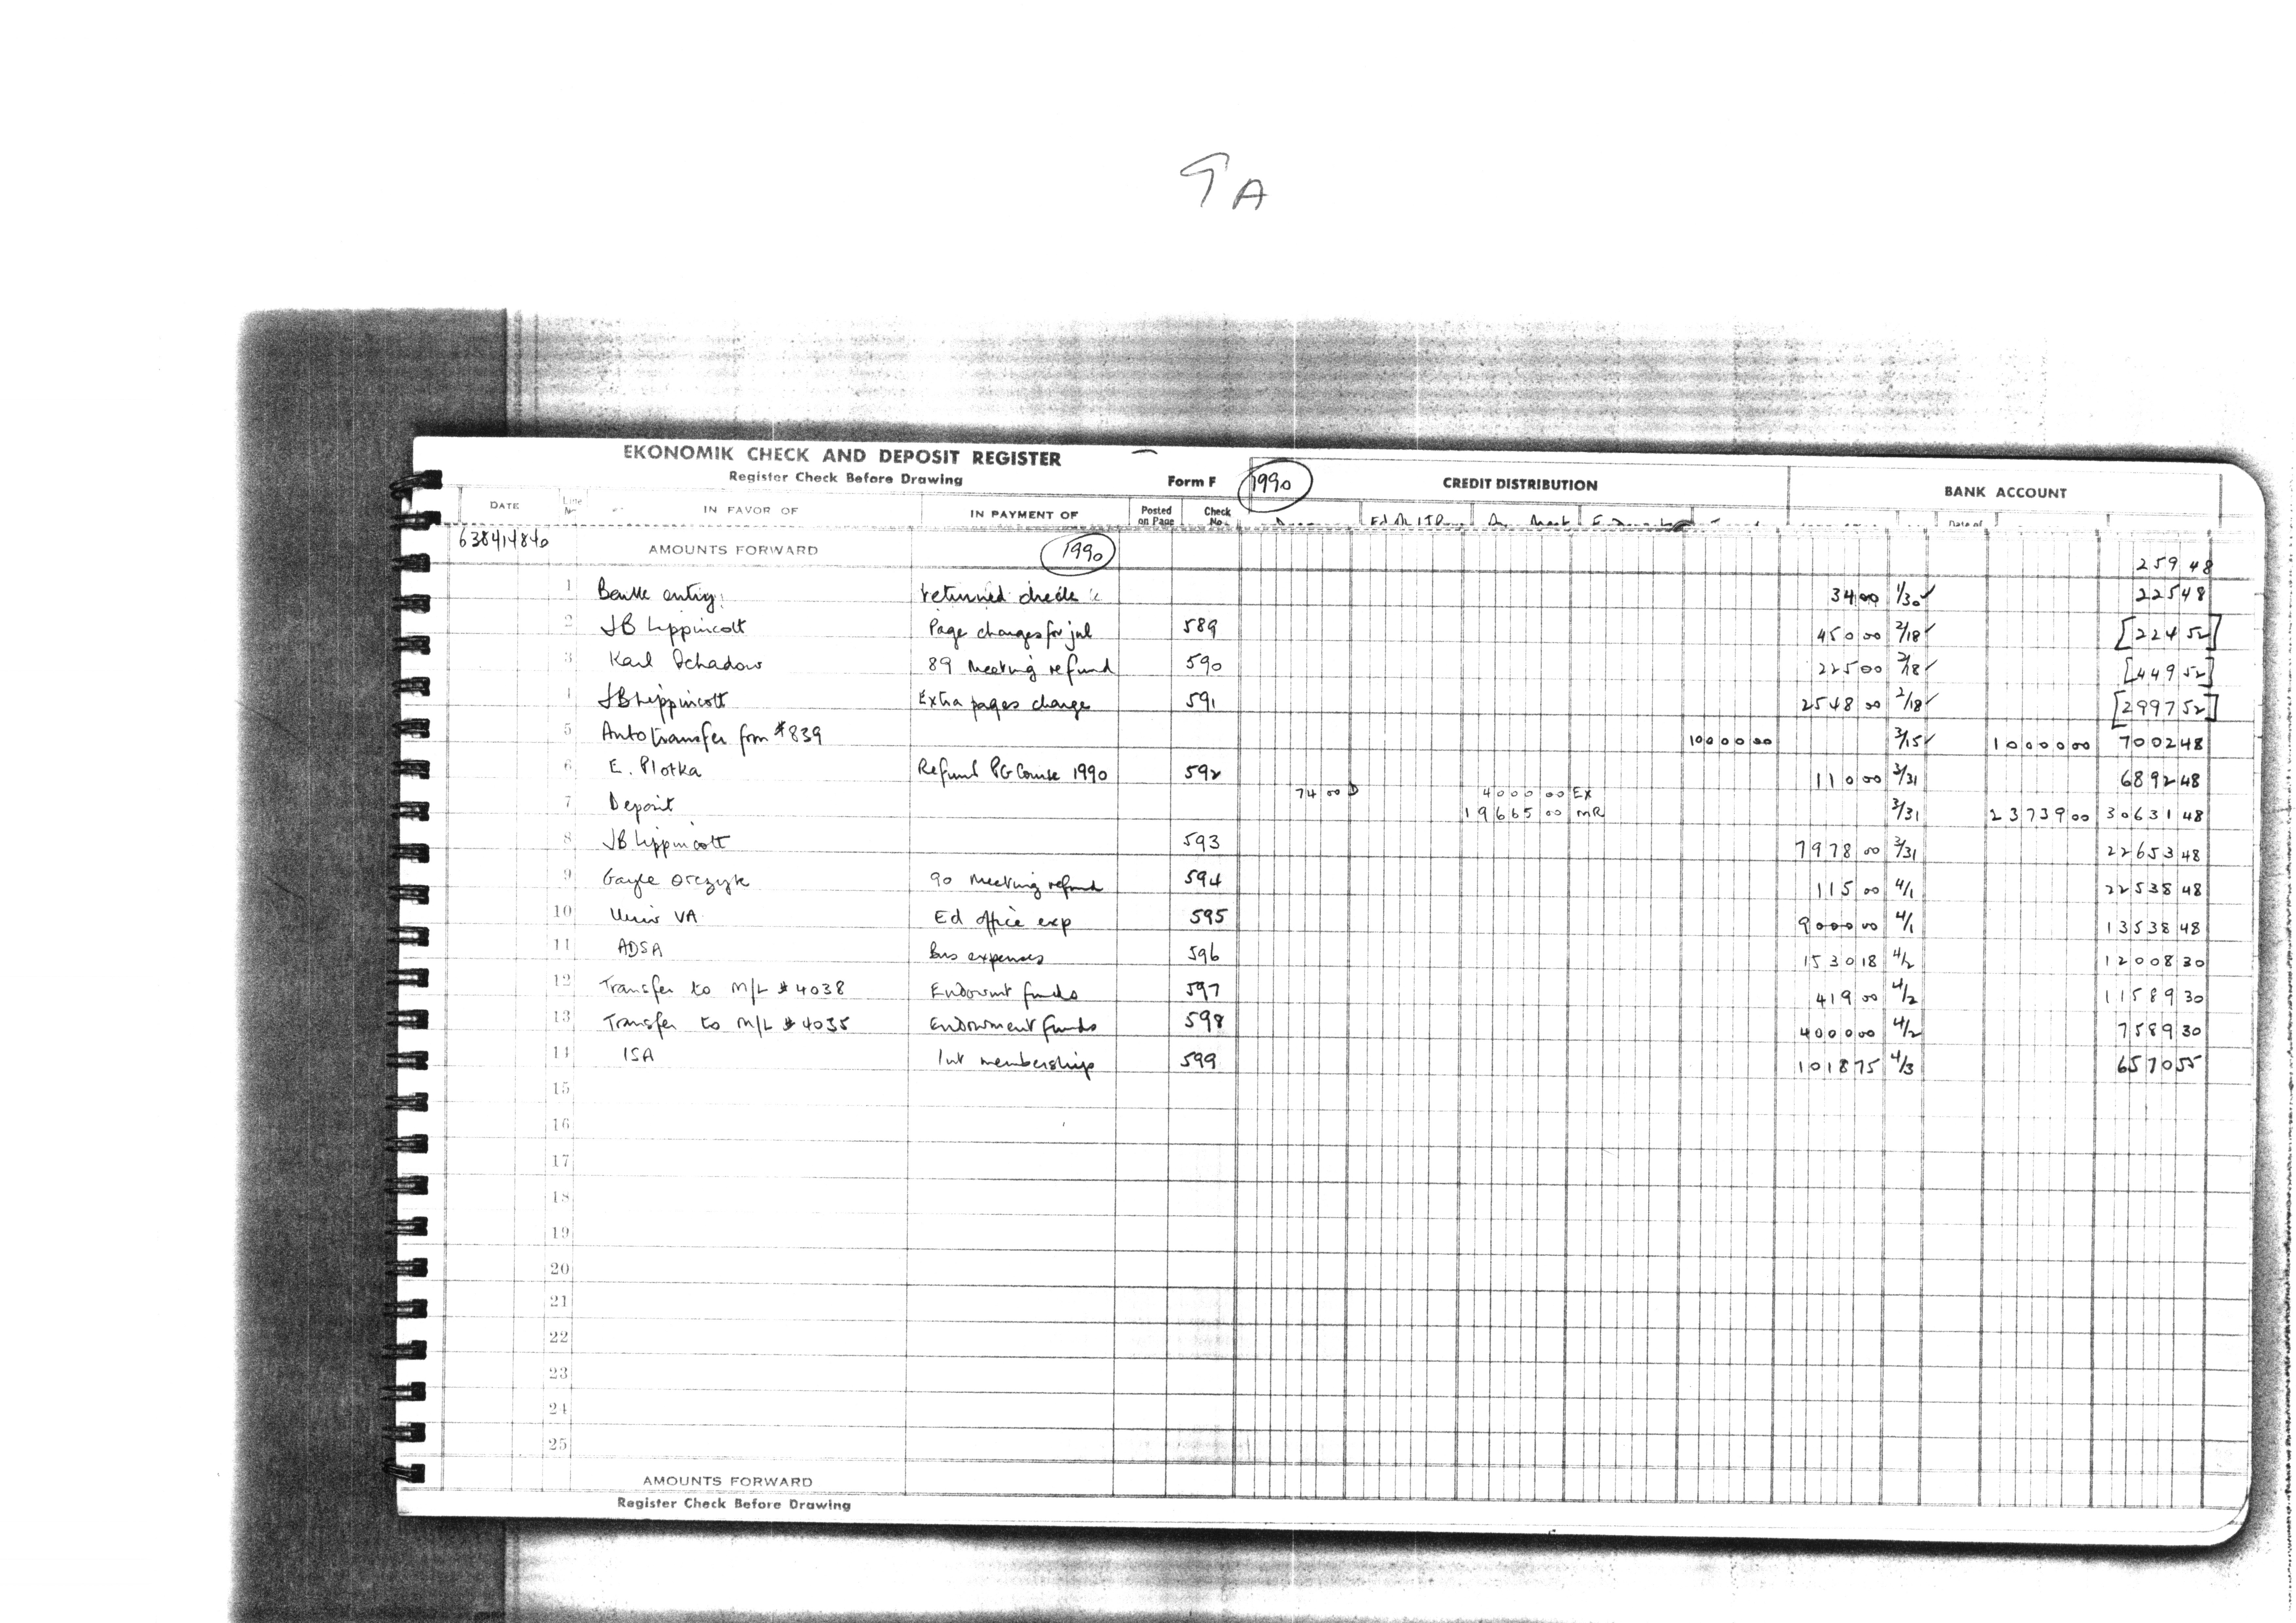 9A
EKONOMIK CHECK AND DEPOSIT REGISTER
Register Check Before Drawing Form F 1990 CREDIT DISTRIBUTION BANK ACCOUNT
DATE Line No. IN FAVOR OF IN PAYMENT OF Posted on Page Check No. Date of
638414840 AMOUNTS FORWARD 1990 259 48
1 Bank entry returned check 34 00 1/30 ✓ 225 48
2 JB Lippincott Page changes for jnl 589 450 00 2/18 ✓ [224 52]
3 Karl Schadow 89 Meeting refund 590 225 00 2/18 ✓ [449 52]
4 JB Lippincott Extra pages charge 591 2548 00 2/18 ✓ [2997 52]
5 Auto transfer from #839 10000 00 3/15 ✓ 10000 00 7002 48
6 E. Plotka Refund PG Course 1990 592 110 00 3/31 6892 48
74 00 D 4000 00 EX
7 Deposit 19665 00 MR 3/31 23739 00 30631 48
8 JB Lippincott 593 7978 00 3/31 22653 48
9 Gayle Orczyk 90 Meeting refund 594 115 00 4/1 22538 48
10 Univ VA Ed office exp 595 9000 00 4/1 13538 48
11 ADSA Bus expenses 596 1530 18 4/2 12008 30
12 Transfer to M/L #4038 Endowmt funds 597 419 00 4/2 11589 30
13 Transfer to M/L #4035 Endowment funds 598 4000 00 4/2 7589 30
14 ISA Int memberships 599 1018 75 4/3 6570 55
15
16
17
18
19
20
21
22
23
24
25
AMOUNTS FORWARD
Register Check Before Drawing